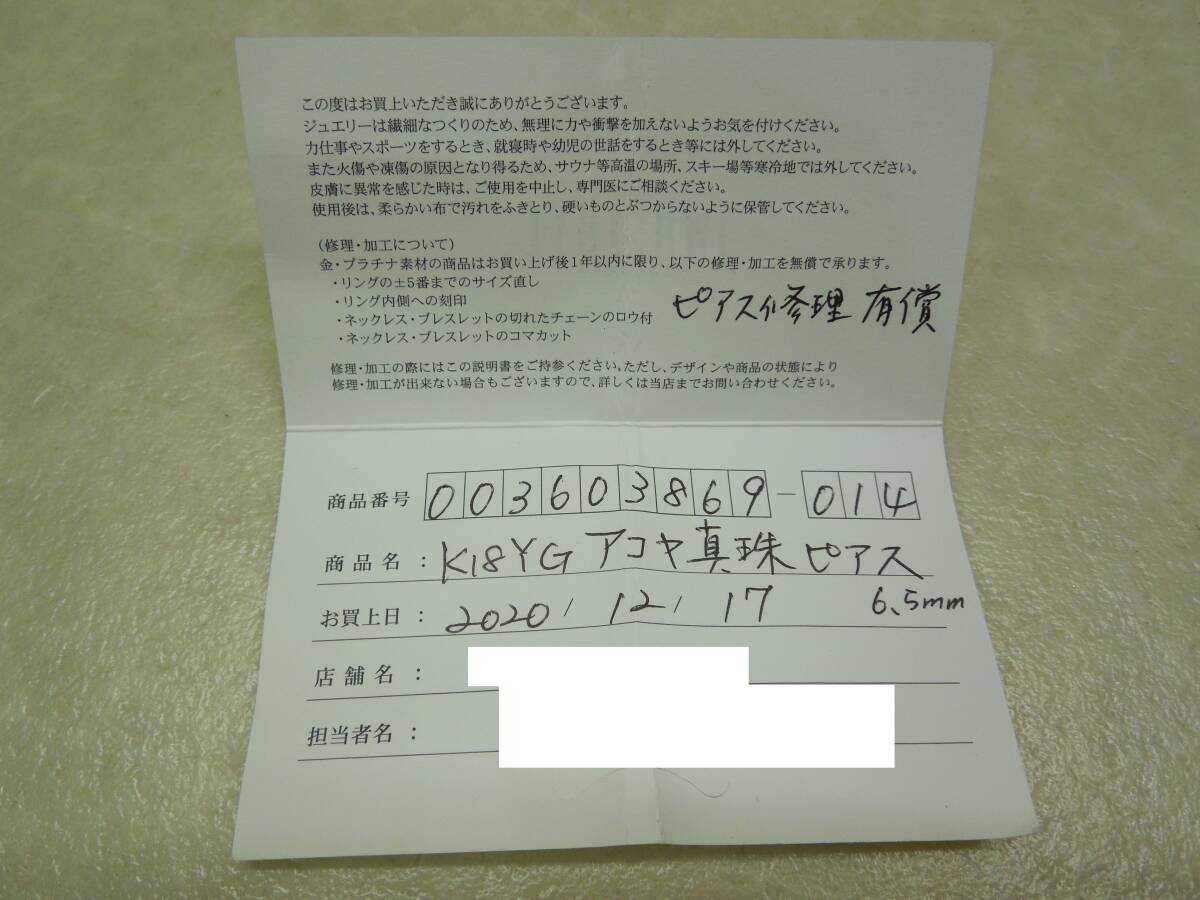 この度はお買上いただき誠にありがとうございます。
ジュエリーは繊細なつくりのため、無理に力や衝撃を加えないようお気を付けください。
力仕事やスポーツをするとき、就寝時や幼児の世話をするとき等には外してください。
また火傷や凍傷の原因となり得るため、サウナ等高温の場所、スキー場等寒冷地では外してください。
皮膚に異常を感じた時は、ご使用を中止し、専門医にご相談ください。
使用後は、柔らかい布で汚れをふきとり、硬いものとぶつからないように保管してください。
(修理・加工について)
金・プラチナ素材の商品はお買い上げ後1年以内に限り、以下の修理・加工を無償で承ります。
・リングの±5番までのサイズ直し
・リング内側への刻印
・ネックレス・ブレスレットの切れたチェーンのロウ付
・ネックレス・ブレスレットのコマカット
ピアス修理 有償
修理・加工の際にはこの説明書をご持参ください。ただし、デザインや商品の状態により
修理・加工が出来ない場合もございますので、詳しくは当店までお問い合わせください。
商品番号 003603869-014
商品名：K18YG アコヤ真珠ピアス
お買上日：2020/12/17 6.5mm
店舗名：
担当者名：